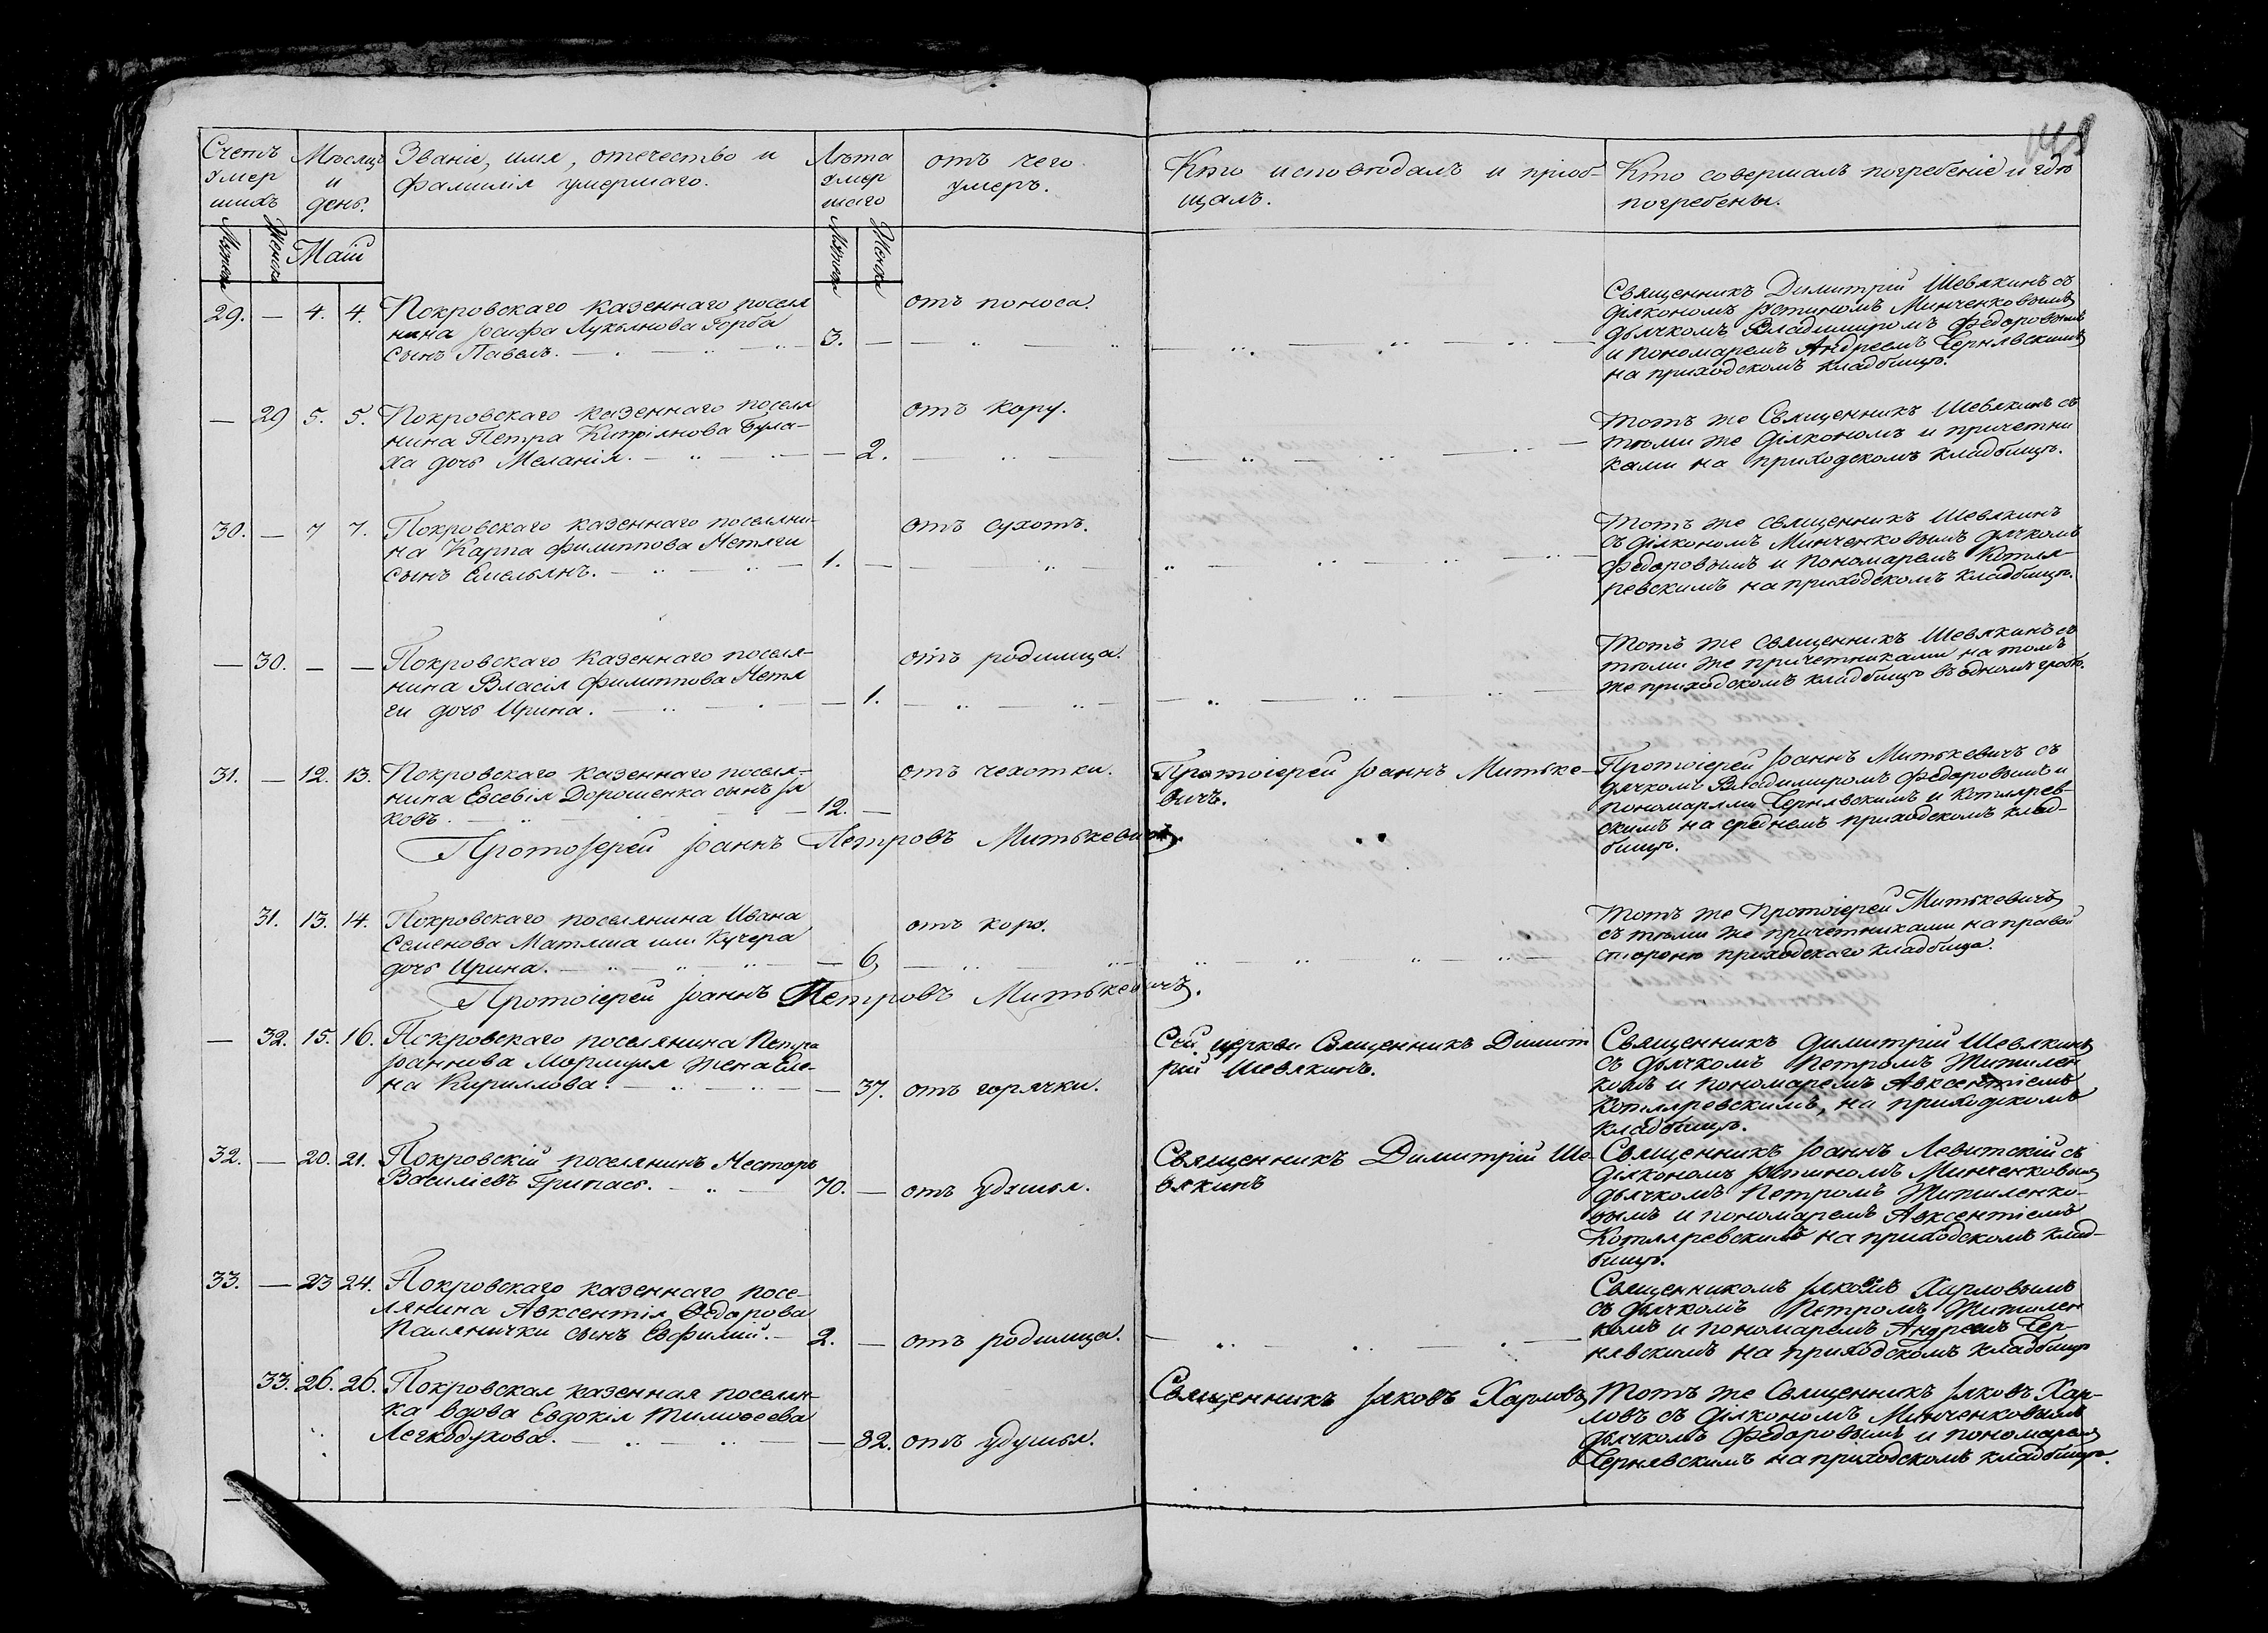 Счетъ умер шихъ
Мѣсяцъ и день.
Званіе, имя, отечество и
фамилія умершаго.
Лѣта умер шаго
отъ чего
умеръ.
Кто исповѣдалъ и пріоб-
щалъ.
Кто совершалъ погребеніе и гдѣ
погребены.
Мужеск
Женск
Маій
Мужеск
Женск
29. — 4. 4. Покровскаго казеннаго поселя
нина Іосифа Лукьянова Горба
сынъ Павелъ. 3. —
отъ поноса.
Священникъ Димитрій Шевякинъ съ
діакономъ Іустиномъ Минченковымъ
дьячкомъ Владимиромъ Федоровымъ
и пономаремъ Андреемъ Чернявскимъ
на приходскомъ кладбищѣ.
— 29 5. 5. Покровскаго казеннаго поселя
нина Петра Кипріянова Була-
ха дочь Меланія. — 2.
отъ кору.
Тотъ же Священникъ Шевякинъ съ
тѣми же діякономъ и причетни
ками на приходскомъ кладбищѣ.
30. — 7 7. Покровскаго казеннаго поселяни-
на Карпа Филиппова Нетяги
сынъ Емельянъ. 1. —
отъ сухотъ.
Тотъ же священникъ Шевякинъ
съ діякономъ Минченковымъ дячкомъ
Федоровымъ и пономаремъ Котля-
ревскимъ на приходскомъ кладбищѣ.
— 30. — — Покровскаго казеннаго поселя-
нина Власія Филиппова Нетя
ги дочь Ирина. — 1.
отъ родимца.
Тотъ же священникъ Шевякинъ съ
тѣми же причетниками на томъ
же приходскомъ кладбищѣ въ одномъ гробѣ.
31. — 12. 13. Покровскаго казеннаго поселя-
нина Евсевія Дорошенка сынъ Ія
ковъ. 12. —
отъ чехотки.
Протоіерей Іоаннъ Митьке-
вичъ.
Протоіерей Іоаннъ Митькевичъ съ
дячкомъ Владимиромъ Федоровымъ и
пономарями Чернявскимъ и Котлярев-
скимъ на среднемъ приходскомъ клад-
бищѣ.
Протоіерей Іоаннъ Петровъ Митькевичъ.
31. 13. 14. Покровскаго поселянина Ивана
Семенова Матяша или Кучера
дочь Ирина. — 6,
отъ кору.
Тотъ же Протоіерей Митькевичъ
съ тѣми же причетниками на правой
сторонѣ приходскаго кладбища.
Протоіерей Іоаннъ Петровъ Митькевичъ.
— 32. 15. 16. Покровскаго поселянина Петра
Іоаннова Мормуля жена Еле-
на Кириллова. — 37. отъ горячки.
Сей церкви Священникъ Димит
рій Шевякинъ.
Священникъ Димитрій Шевякинъ
съ дьячкомъ Петромъ Житилен
комъ и пономаремъ Авксентіемъ
Котляревскимъ, на приходскомъ
кладбищѣ.
32. — 20. 21. Покровскій поселянинъ Несторъ
Василіевъ Грипась. 70. — отъ удушья.
Священникъ Димитрій Ше
вякинъ
Священникъ Іоаннъ Левитскій съ
діякономъ Іустиномъ Минченковымъ
дьячкомъ Петромъ Житиленко-
вымъ и пономаремъ Авксентіемъ
Котляревскимъ на приходскомъ клад-
бищѣ.
33. — 23 24. Покровскаго казеннаго посе-
лянина Авксентія Федорова
Палянички сынъ Евфимій. 2. — отъ родимца.
Священникомъ Іяковомъ Харловымъ
съ дьячкомъ Петромъ Житилен
комъ и пономаремъ Андреемъ Чер-
нявскимъ на приходскомъ кладбищѣ
33. 26. 26. Покровская казенная поселян-
ка вдова Евдокія Тимофеева
Легкодухова. — 82. отъ удушья.
Священникъ Іяковъ Харловъ
Тотъ же Священникъ Іяковъ Хар-
ловъ съ діякономъ Минченковымъ
дьячкомъ Федоровымъ и пономаремъ
Чернявскимъ на приходскомъ кладбищѣ.